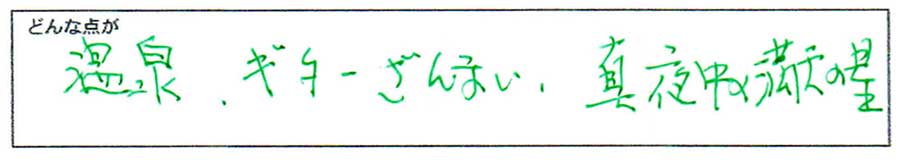 どんな点が
温泉、ギターざんまい、真夜中の満天の星